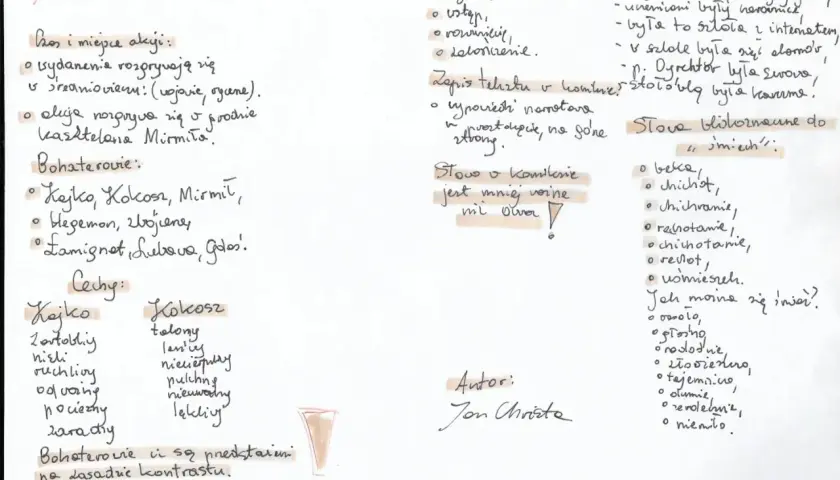 Czas i miejsce akcji:
wydarzenia rozgrywają się
w średniowieczu: (wojowie, rycerze).
akcja rozgrywa się w grodzie
kasztelana Mirmiła.
Bohaterowie:
Kajko, Kokosz, Mirmił,
Hegemon, zbójcerze,
Łamignat, Lubawa, Gdaś.
Cechy:
Kajko
żartobliwy
niski
ruchliwy
odważny
pocieszny
zaradny
Kokosz
łakomy
leniwy
niecierpliwy
pulchny
nieuważny
lękliwy
Bohaterowie ci są przedstawieni
na zasadzie kontrastu.
wstęp,
rozwinięcie,
zakończenie.
Zapis tekstu w komiksie:
wypowiedzi narratora
w prostokącie, na górze
strony.
Słowo w komiksie
jest mniej ważne
niż obraz!
Autor:
Jan Christa
- była to szkoła z internatem,
- w szkole było sześć
- p. Dyrektor była surowa,
- stołówką była karczma.
Słowa bliskoznaczne do
"śmiech":
beka,
chichot,
chichranie,
rechotanie,
chichotanie,
rechot,
uśmieszek.
Jak można się śmiać?
wesoło,
głośno,
radośnie,
złowieszczo,
tajemniczo,
dumnie,
serdecznie,
niemiło.